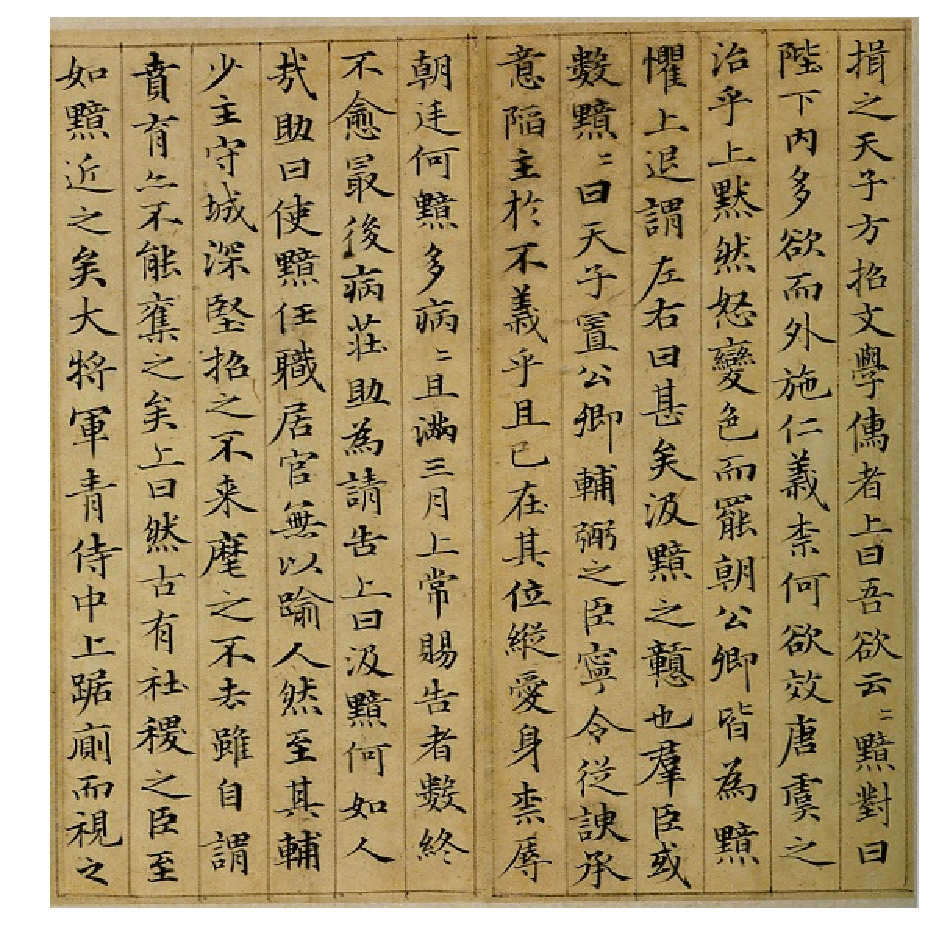 揖之天子方招文學儒者上曰吾欲云〻黯對曰
陛下内多欲而外施仁義柰何欲效唐虞之
治乎上默然怒變色而罷朝公卿皆為黯
懼上退謂左右曰甚矣汲黯之戇也羣臣或
數黯〻曰天子置公卿輔弼之臣寧令從諛承
意陷主於不義乎且已在其位縱愛身柰辱
朝廷何黯多病〻且滿三月上常賜告者數終
不愈最後病莊助為請告上曰汲黯何如人
㢤助曰使黯任職居官無以踰人然至其輔
少主守城深堅招之不来麾之不去雖自謂
賁育亦不能奪之矣上曰然古有社稷之臣至
如黯近之矣大將軍青侍中上踞廁而視之